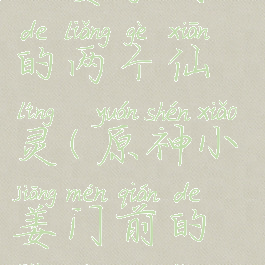 de liǎng gè xiān
的两个仙
líng yuán shén xiǎo
灵(原神小
Jiāng mén qián de
姜门前的